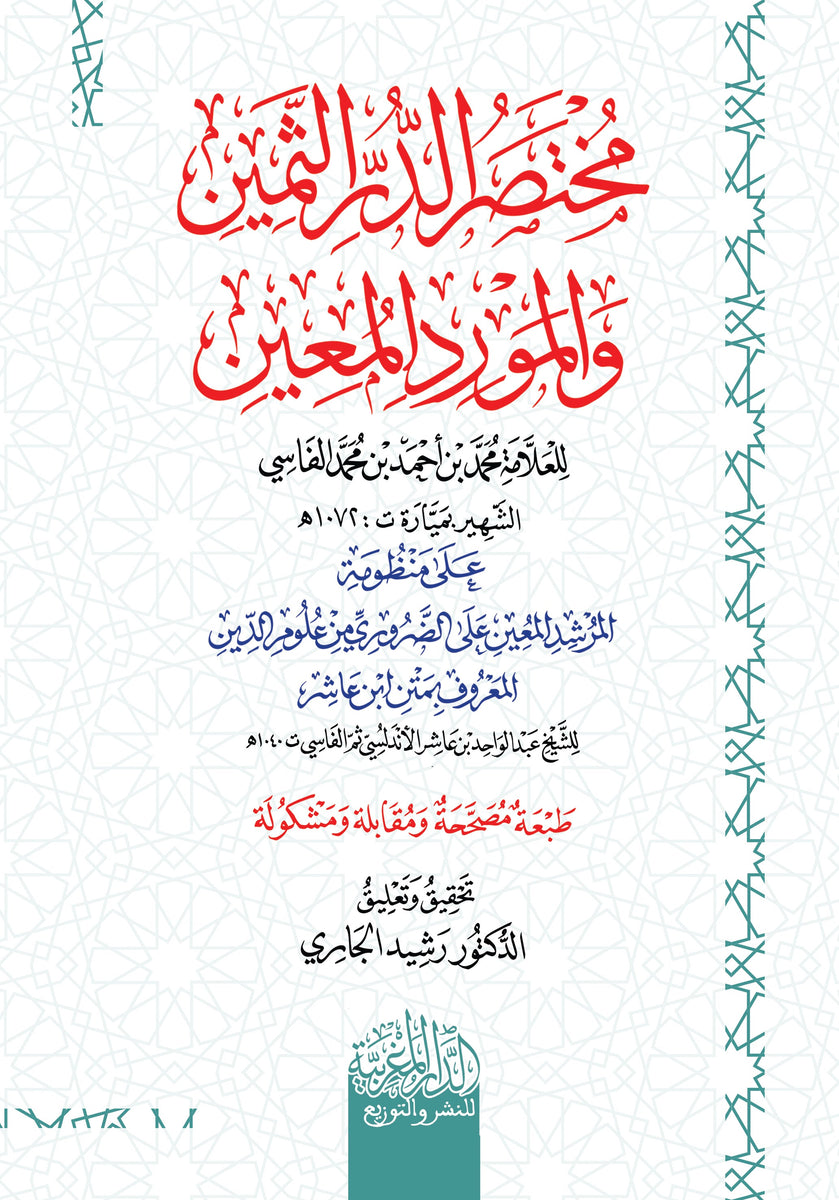 مُخْتَصَرُ الدُّرِّ الثَّمِينِ
وَالمَوْرِدِ المُعِينِ
لِلْعَلَّامَةِ مُحَمَّد بْن أَحْمَد بْن مُحَمَّد الفَاسِي
الشَّهِير بمَيَّارَة ت : ١٠٧٢هـ
عَلَى مَنْظُومَةِ
المُرْشِدِ المُعِينِ عَلَى الضَّرُورِيِّ مِنْ عُلُومِ الدِّينِ
المَعْرُوفِ بِمَتْنِ ابْنِ عَاشِر
لِلشَّيْخِ عَبْد الوَاحِد بْن عَاشِر الأَنْدَلُسِيّ ثُمَّ الفَاسِي ت ١٠٤٠هـ
طَبْعَةٌ مُصَحَّحَةٌ وَمُقَابلة وَمَشْكُولَة
تَحْقِيقُ وَتَعْلِيقُ
الدُّكْتُور رَشِيد الجَارِي
الدَّار المَغْرِبِيَّة
للنشر والتوزيع